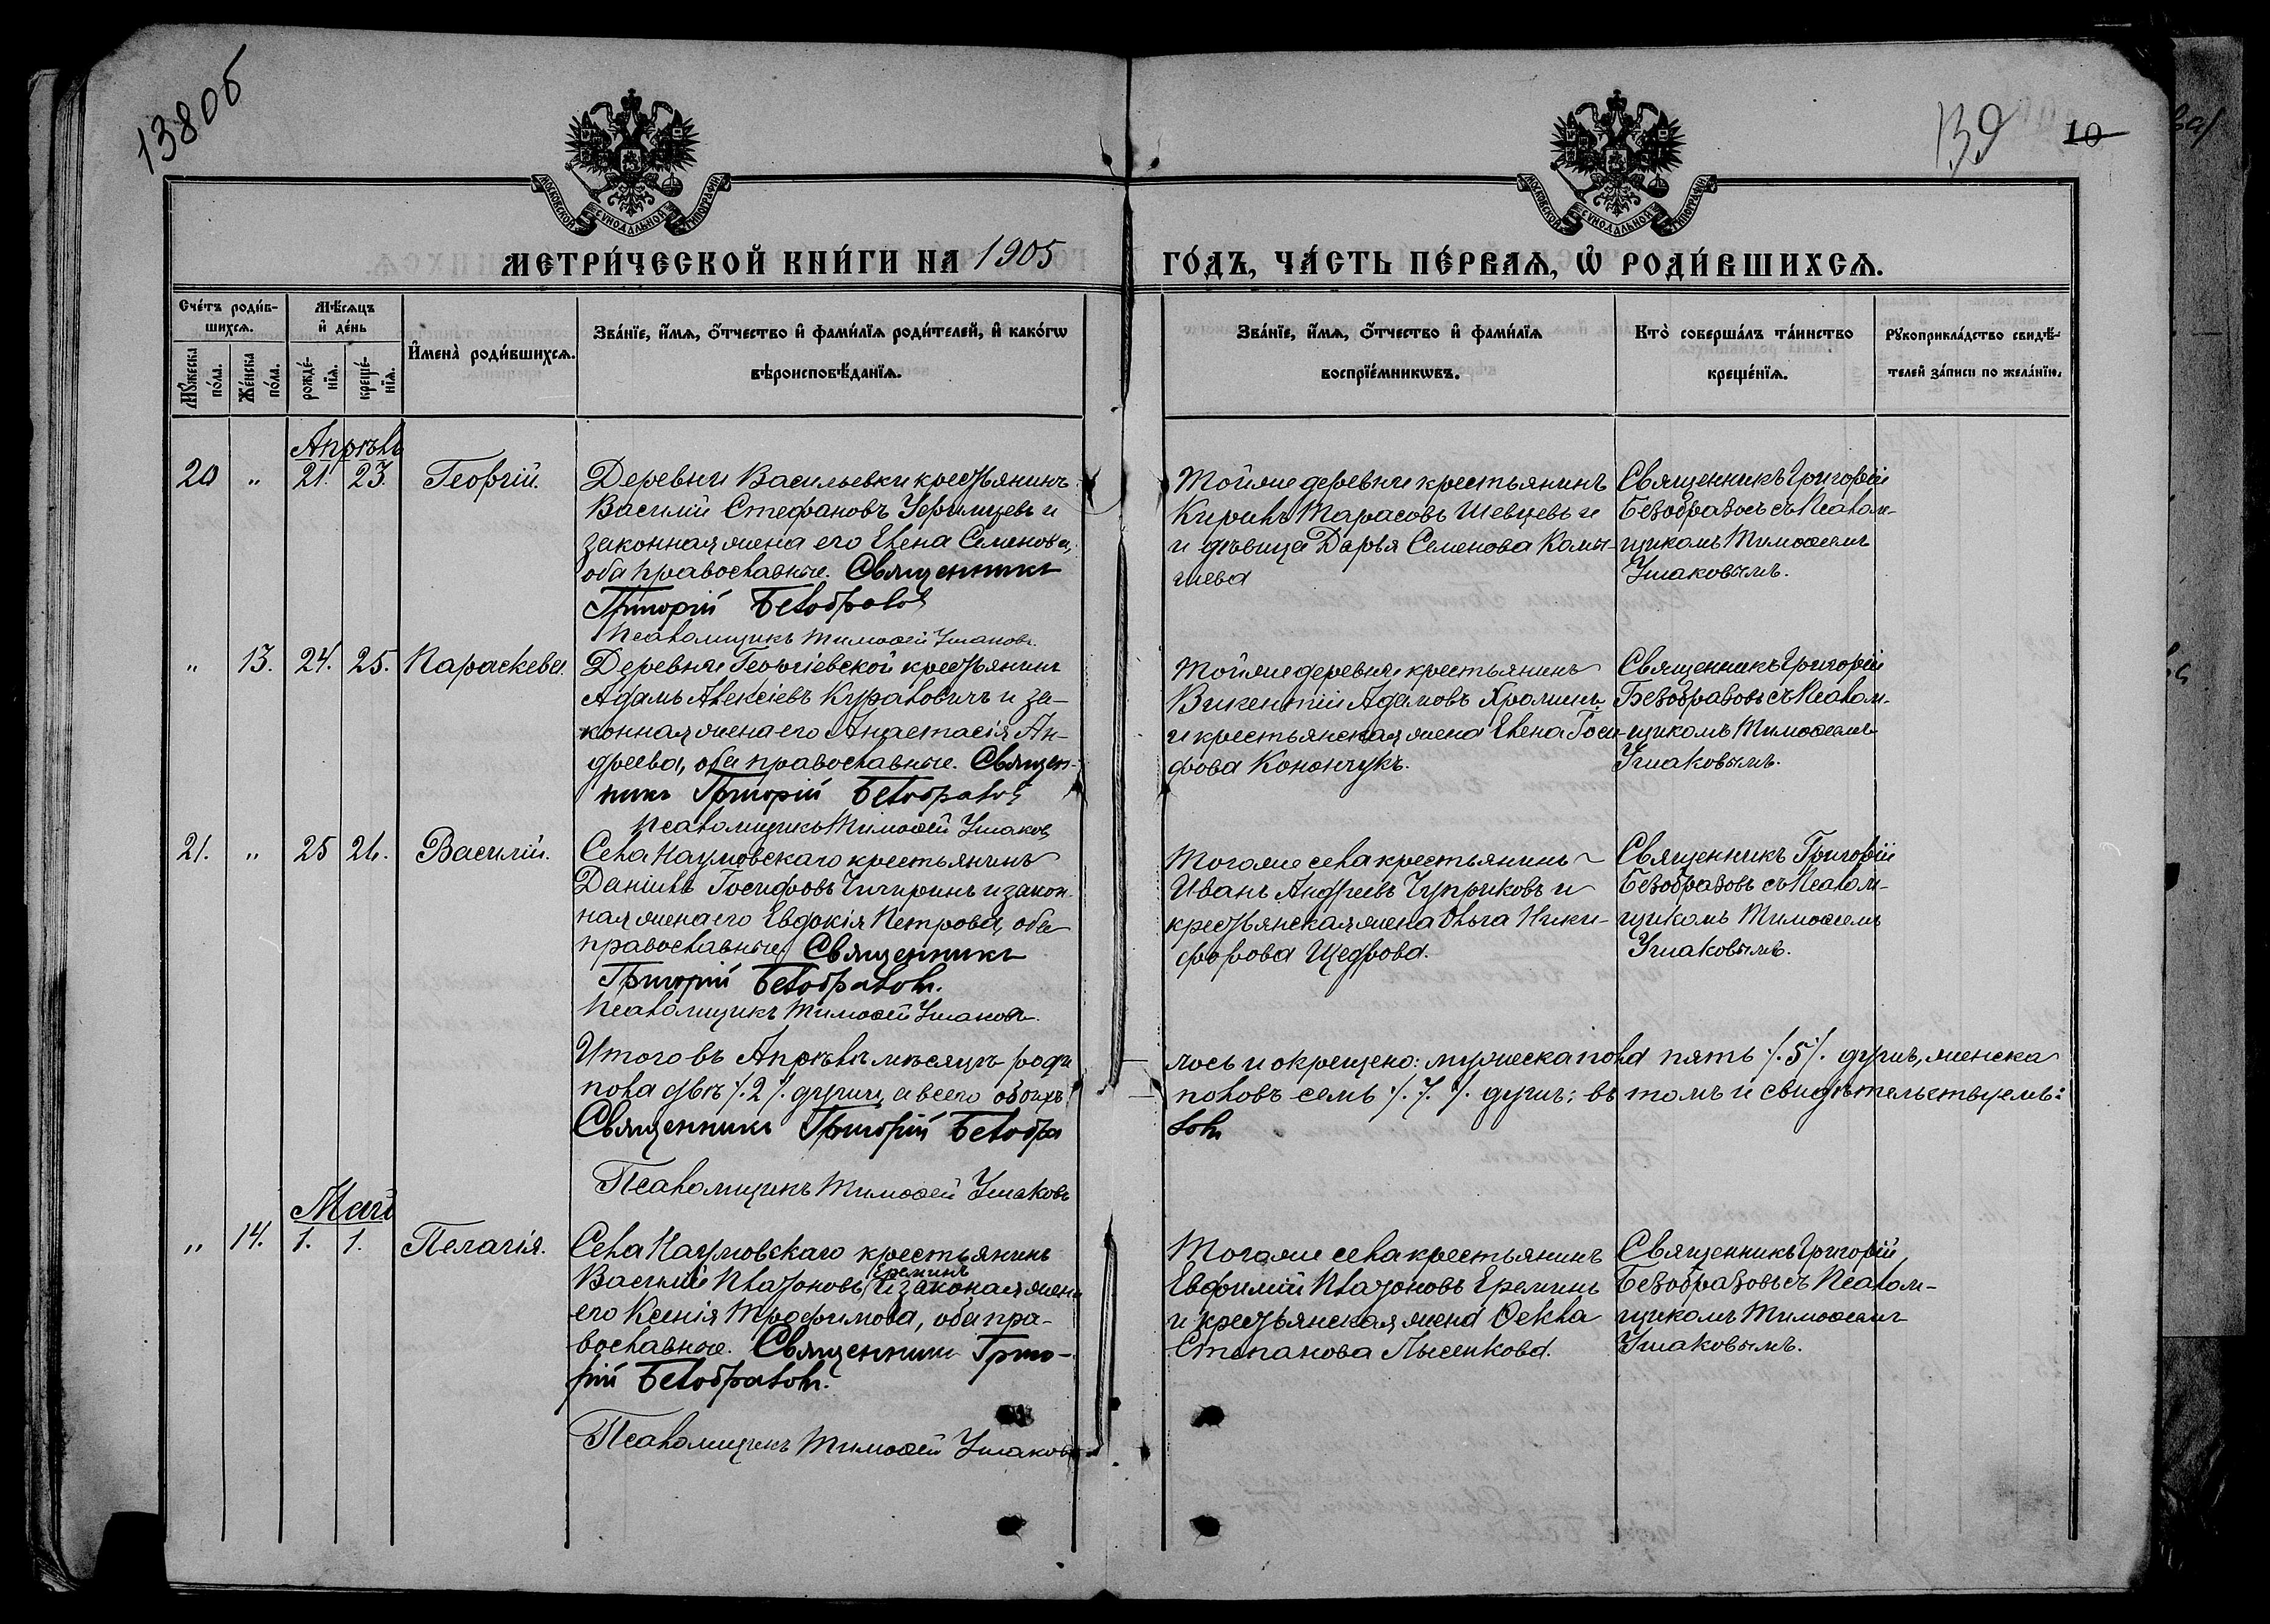 138об
139
10
МОСКОВСКОЙ СѴНОДАЛЬНОЙ ТИПОГРАФІИ
МОСКОВСКОЙ СѴНОДАЛЬНОЙ ТИПОГРАФІИ
МЕТРИ́ЧЕСКОЙ КНИ́ГИ НА 1905
ГО́ДЪ, ЧА́СТЬ ПЕ́РВАѦ, Ѽ РОДИ́ВШИХСѦ.
Сче́тъ роди́в-
шихсѧ.
Мꙋ́жеска
по́ла.
Же́нска
по́ла.
Мѣ́сѧцъ
и҆ де́нь
рожде́-
нїѧ.
креще́-
нїѧ.
И҆мена̀ роди́вшихсѧ.
Зва́нїе, и҆́мѧ, ѻ҆́тчество и҆ фами́лїѧ роди́телей, и҆ како́гѡ
вѣроисповѣ́данїѧ.
Зва́нїе, и҆́мѧ, ѻ҆́тчество и҆ фами́лїѧ
воспрїе́мникѡвъ.
Кто̀ соверша́лъ та́инство
креще́нїѧ.
Рꙋкоприкла́дство свидѣ́-
телей за́писи по жела́нїю.
Апрѣль
20 " 21. 23. Георгій.
Деревни Васильевки крестьянинъ
Василій Стефановъ и
законная жена его Елена Семенова,
оба православные. Священникъ
Григорій Безобразовъ
Псаломщикъ Тимоѳей Ушаковъ.
Тойже деревни крестьянинъ
Кирилъ Тарасовъ Шевцевъ и
и дѣвица Дарья Семенова Камы-
шева
Священникъ Григорій
Безобразовъ съ Псалом-
щикомъ Тимоѳеемъ
Ушаковымъ.
" 13. 24. 25. Параскева.
Деревни Георгіевской крестьянинъ
Адамъ Алексіевъ Куралович и за-
конная жена его Анастасія Ан-
дреева, оба православные. Священ-
никъ Григорій Безобразовъ
Псаломщикъ Тимоѳей Ушаковъ
Тойже деревни крестьянинъ
Викентій Адамовъ Хроминъ
и крестьянская жена Елена Іоси-
фова Конончукъ.
Священникъ Григорій
Безобразовъ съ Псалом-
щикомъ Тимоѳеемъ
Ушаковымъ.
21. " 25 26. Василій.
Села Наумовскаго крестьянинъ
Даніилъ Іосифовъ Чичиринъ и закон-
ная жена его Евдокія Петрова, оба
православные. Священникъ
Григорій Безобразовъ.
Псаломщикъ Тимоѳей Ушаковъ.
Тогоже села крестьянинъ
Иванъ Андреевъ Чуприковъ и
крестьянская жена Ольга Ники-
форова Щедрова.
Священникъ Григорій
Безобразовъ съ Псалом-
щикомъ Тимоѳеемъ
Ушаковымъ.
Итого въ Апрѣлѣ мѣсяцѣ роди
лось и окрещено: мужеска пола пять /.5/. душъ, женска
пола двѣ /.2/. души, а всего обоихъ
половъ семь /.7./. душъ; въ томъ и свидѣтельствуемъ:
Священникъ Григорій Безобра
зовъ
Псаломщикъ Тимоѳей Ушаковъ
Май
" 14. 1. 1. Пелагія.
Села Наумовскаго крестьянинъ
Василій Платоновъ Ереминъ и законая жена
его Ксенія Трофимова, оба пра-
вославные. Священникъ Григо-
рій Безобразовъ.
Псаломщикъ Тимоѳей Ушаковъ
Тогоже села крестьянинъ
Евфимій Платоновъ Ереминъ
и крестьянская жена Ѳекла
Степанова Лысенкова.
Священникъ Григорій
Безобразовъ съ Псалом-
щикомъ Тимоѳеемъ
Ушаковымъ.